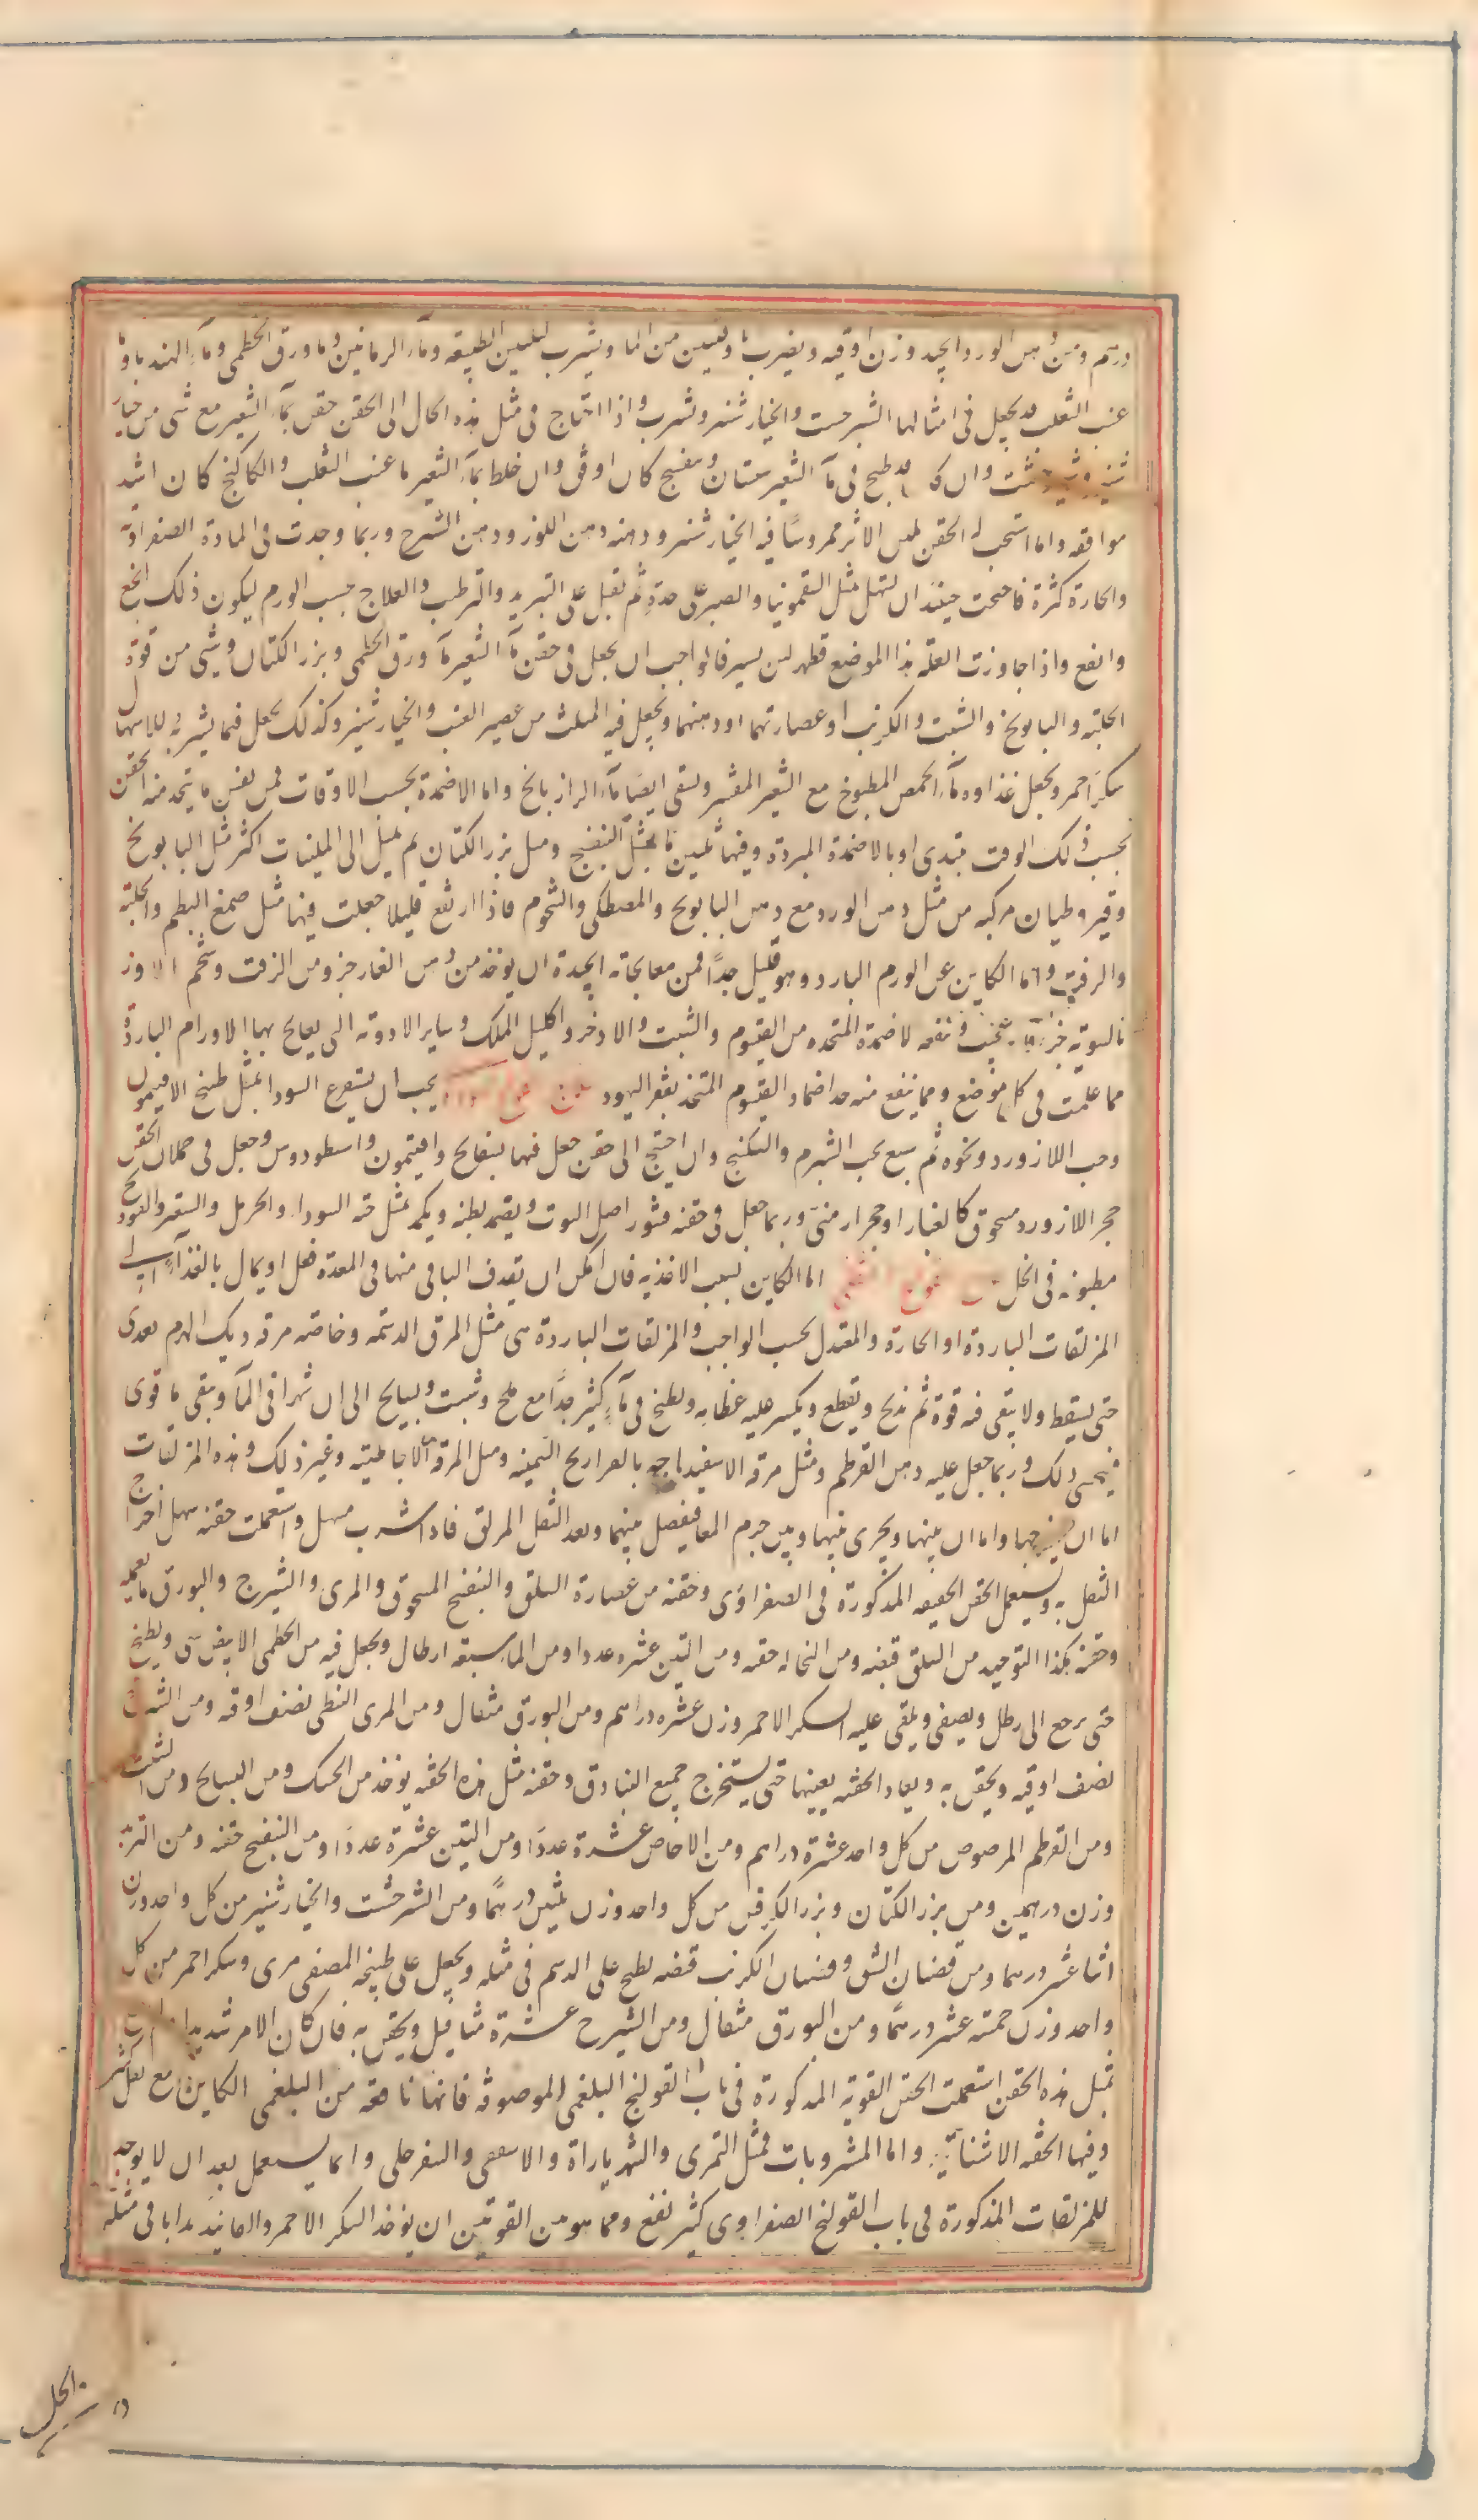 درهم ومن دهن الورد الجيد وزن اوقيه ويضرب باوقيتين من الما ويشرب لتليين الطبيعه وماء الرمانين وما ورق الخطمى وماء الهندبا وما
عنب الثعلب قد يجعل فى امثالها الشيرخشت والخيارشنبر وتشرب واذا احتاج فى مثل هذه الحال الى الحقن حقن بماء الشعير مع شى من خيار
شنبر وشيرخشت وان كان قد طبخ فى ماء الشعير سپستان وبنفسج كان اوفق وان خلط بماء الشعير ما عنب الثعلب والكاكنج كان اشد
موافقه واما استحب له الحقن بلبن الاتن ممروسًا فيه الخيارشنبر ودهنه دهن اللوز ودهن الشيرج وربما وجدت فى المادة الصفراويه
والحارة كثرة فاحتجت حينئذ ان تسهل مثل السقمونيا والصبر على حدةٍ ثم تقبل على التبريد والترطيب والعلاج بحسب الورم ليكون ذلك انجع
وانفع واذا جاوزت العلة هذا الموضع فظهر لين يسير فالواجب ان يجعل فى حقن ماء الشعير ماء ورق الخطمى وبزر الكتان وشى من قوة
الحلبه والبابونج والشبت والكرنب او عصارتهما او دهنهما ويجعل فيه المثلث من عصير العنب والخيارشنبر وكذلك يجعل فيما يشربه للاسهال
سكرًا احمر ويجعل غذاوه ماء الحمص المطبوخ مع الشعير المقشر ويسقى ايضًا ماء الرازيانج واما الاضمدة بحسب الاوقات فمن نفس ما يتخذ منه الحقن
بحسب ذلك الوقت تبتدى اوبالاضمدة المبردة وفيها تليين ما مثل البنفسج ومثل بزر الكتان ثم يميل الى الملينات اكثر مثل البابونج
وقيروطيان مركبه من مثل دهن الورد مع دهن البابونج والمصطكى والشحوم فاذا ارتفع قليلا جعلت فيها مثل صمغ البطم والحلبة
والزفت واما الكاين عن الورم البارد وهو قليل جدًا فمن معالجاته الجيدة ان يوخذ من دهن الغار جزو من الزفت وشحم الاوز
بالسويه جزءً فيعجن ونفعه الاضمدة المتخذه من القيسوم والشبت والاذخر واكليل الملك وساير الادويه التى يعالج بها الاورام الباردة
مما علمت فى كل موضع ومما ينفع منه جدا ضماد القيسوم المتخذ بقفر اليهود يجب ان يستفرغ السودا بمثل طبيخ الافتيمون
وحب اللازورد ونحوه ثم يتبع بحب الشبرم والسكبينج وان احتيج الى حقن جعل فيها بسفايج وافتيمون واسطوخودوس وجعل فى حملان الحقن
حجر اللازورد مسحوق كالغبار او حجر ارمنى وربما جعل فى حقنه قشور اصل التوت ويضمد بطنه ويكمد بمثل حبه السوداء والحرمل والسعتر والفودنج
مطبوخه فى الخل اما الكاين لسبب الاغذيه فان امكن ان يقذف الباقى منها فى المعدة فعل او يمال بالغذاء الى
المزلقات الباردة او الحارة والمعتدل بحسب الواجب والمزلقات الباردة هى مثل المرق الدسمه وخاصه مرقه ديك الهرم يعدى
حتى يسقط ولا يبقى فيه قوة ثم يذبح ويقطع ويكسر عليه عظامه ويطبخ فى ماءٍ كثير جدًا مع ملح وشبت وبسبايج الى ان تتهرا فى الماء ويبقى ما قوى
فيحسى ذلك وربما جعل عليه دهن القرطم ومثل مرقه الاسفيداجه بالفراريج السمينه ومثل المرقه الاجاصيه وغير ذلك وهذه المزلقات
اما ان يخرجها واما ان يلينها ويجرى بينها وبين جرم المعا فيفصل بينهما وبعد الثقل المزلق فاذا شرب مسهل واستعملت حقنه سهل اخراج
الثقل به ويستعمل الحقن الخفيفه المذكورة فى الصفراوى وحقنه من عصارة السلق والبنفسج المسحوق والمرى والشيرج والبورق ما نعلمه
وحقنه بهذا التوحيد من السلق قبضه ومن النخاله حفنه ومن التين عشره عددا ومن الماء سبعة ارطال ويجعل فيه من الخطمى الابيض ويطبخ
حتى يرجع الى رطل ويصفى ويلقى عليه السكر الاحمر وزن عشره دراهم ومن البورق مثقال ومن المرى النبطى نصف اوقيه ومن الشيرج
نصف اوقيه ويحقن به ويعاد الحقنه بعينها حتى يستخرج جميع البنادق وحقنه مثل هذه الحقنه يوخذ من الحسك ومن البسبايج ومن الشبت
ومن القرطم المرضوض من كل واحد عشرة دراهم ومن الاجاص عشرة عددًا ومن التين عشرة عددًا ومن البنفسج حفنه ومن التربد
وزن درهمين ومن بزر الكتان وبزر الكرفس من كل واحد وزن ثلثين درهمًا ومن الشيرخشت والخيارشنبر من كل واحد وزن
اثنا عشر درهما ومن قضبان السلق وقضبان الكرنب قبضه يطبخ على الرسم فى مثله ويجعل على طبيخه المصفى مرى وسكر احمر من كل
واحد وزن خمسه عشر درهمًا ومن البورق مثقال ومن الشيرج عشرة مثاقيل ويحقن به فان كان الامر شديدا
بمثل هذه الحقن استعملت الحقن القويه المذكورة فى باب القولنج البلغمى الموصوفه فانها نافعه من البلغمى الكاين مع ثقل
وفيها الحقنه الاشنانيه واما المشروبات فمثل التمرى والشهرياراة والاسقفى والسفرجلى وانما يستعمل بعد ان لا يوجد
للمزلقات المذكورة فى باب القولنج الصفراوى كثير نفع ومما هو بين القوتين ان يوخذ السكر الاحمر والفانيذ مذابا فى مثله
الخل